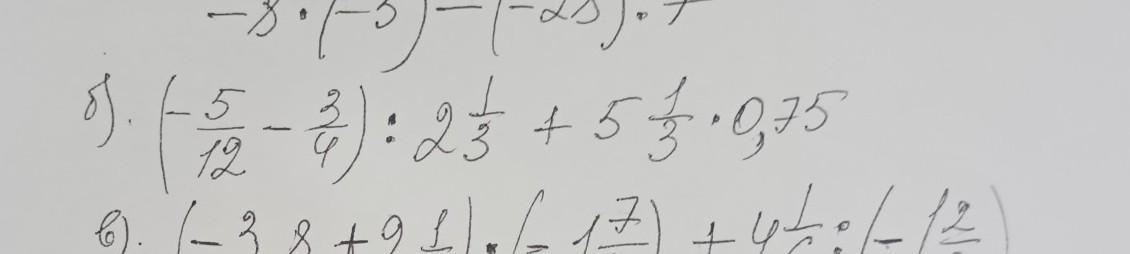 -8 · (-5) - (-28) · 7
б). (-5/12 - 3/4) : 2 1/3 + 5 1/3 · 0,75
в). (-3,8 + 9 1/ ) · (-1 7/ ) + 4 1/ : (-12/ )